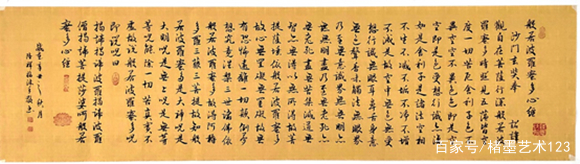 般若波羅蜜多心經
沙門玄奘奉 詔譯
觀自在菩薩行深般若波
羅蜜多時照見五蘊皆空
度一切苦厄舍利子色不
異空空不異色色即是空
空即是色受想行識亦復
如是舍利子是諸法空相
不生不滅不垢不淨不增
不減是故空中無色無受
想行識無眼耳鼻舌身意
無色聲香味觸法無眼界
乃至無意識界無無明亦
無無明盡乃至無老死亦
無老死盡無苦集滅道無
智亦無得以無所得故菩
提薩埵依般若波羅蜜多
故心無罣礙無罣礙故無
有恐怖遠離一切顛倒夢
想究竟涅槃三世諸佛依
般若波羅蜜多故得阿耨
多羅三藐三菩提故知般
若波羅蜜多是大神咒是
大明咒是無上咒是無等
等咒能除一切苦真實不
虛故說般若波羅蜜多咒
即說咒曰
揭諦揭諦波羅揭諦波羅
僧揭諦菩提薩婆訶般若
波羅蜜多心經
百家号/楮墨艺术123